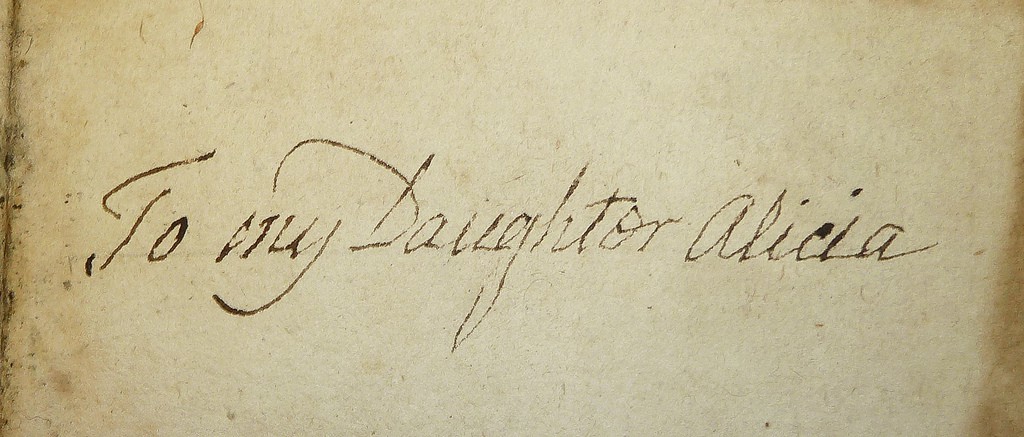 To my Daughter Alicia